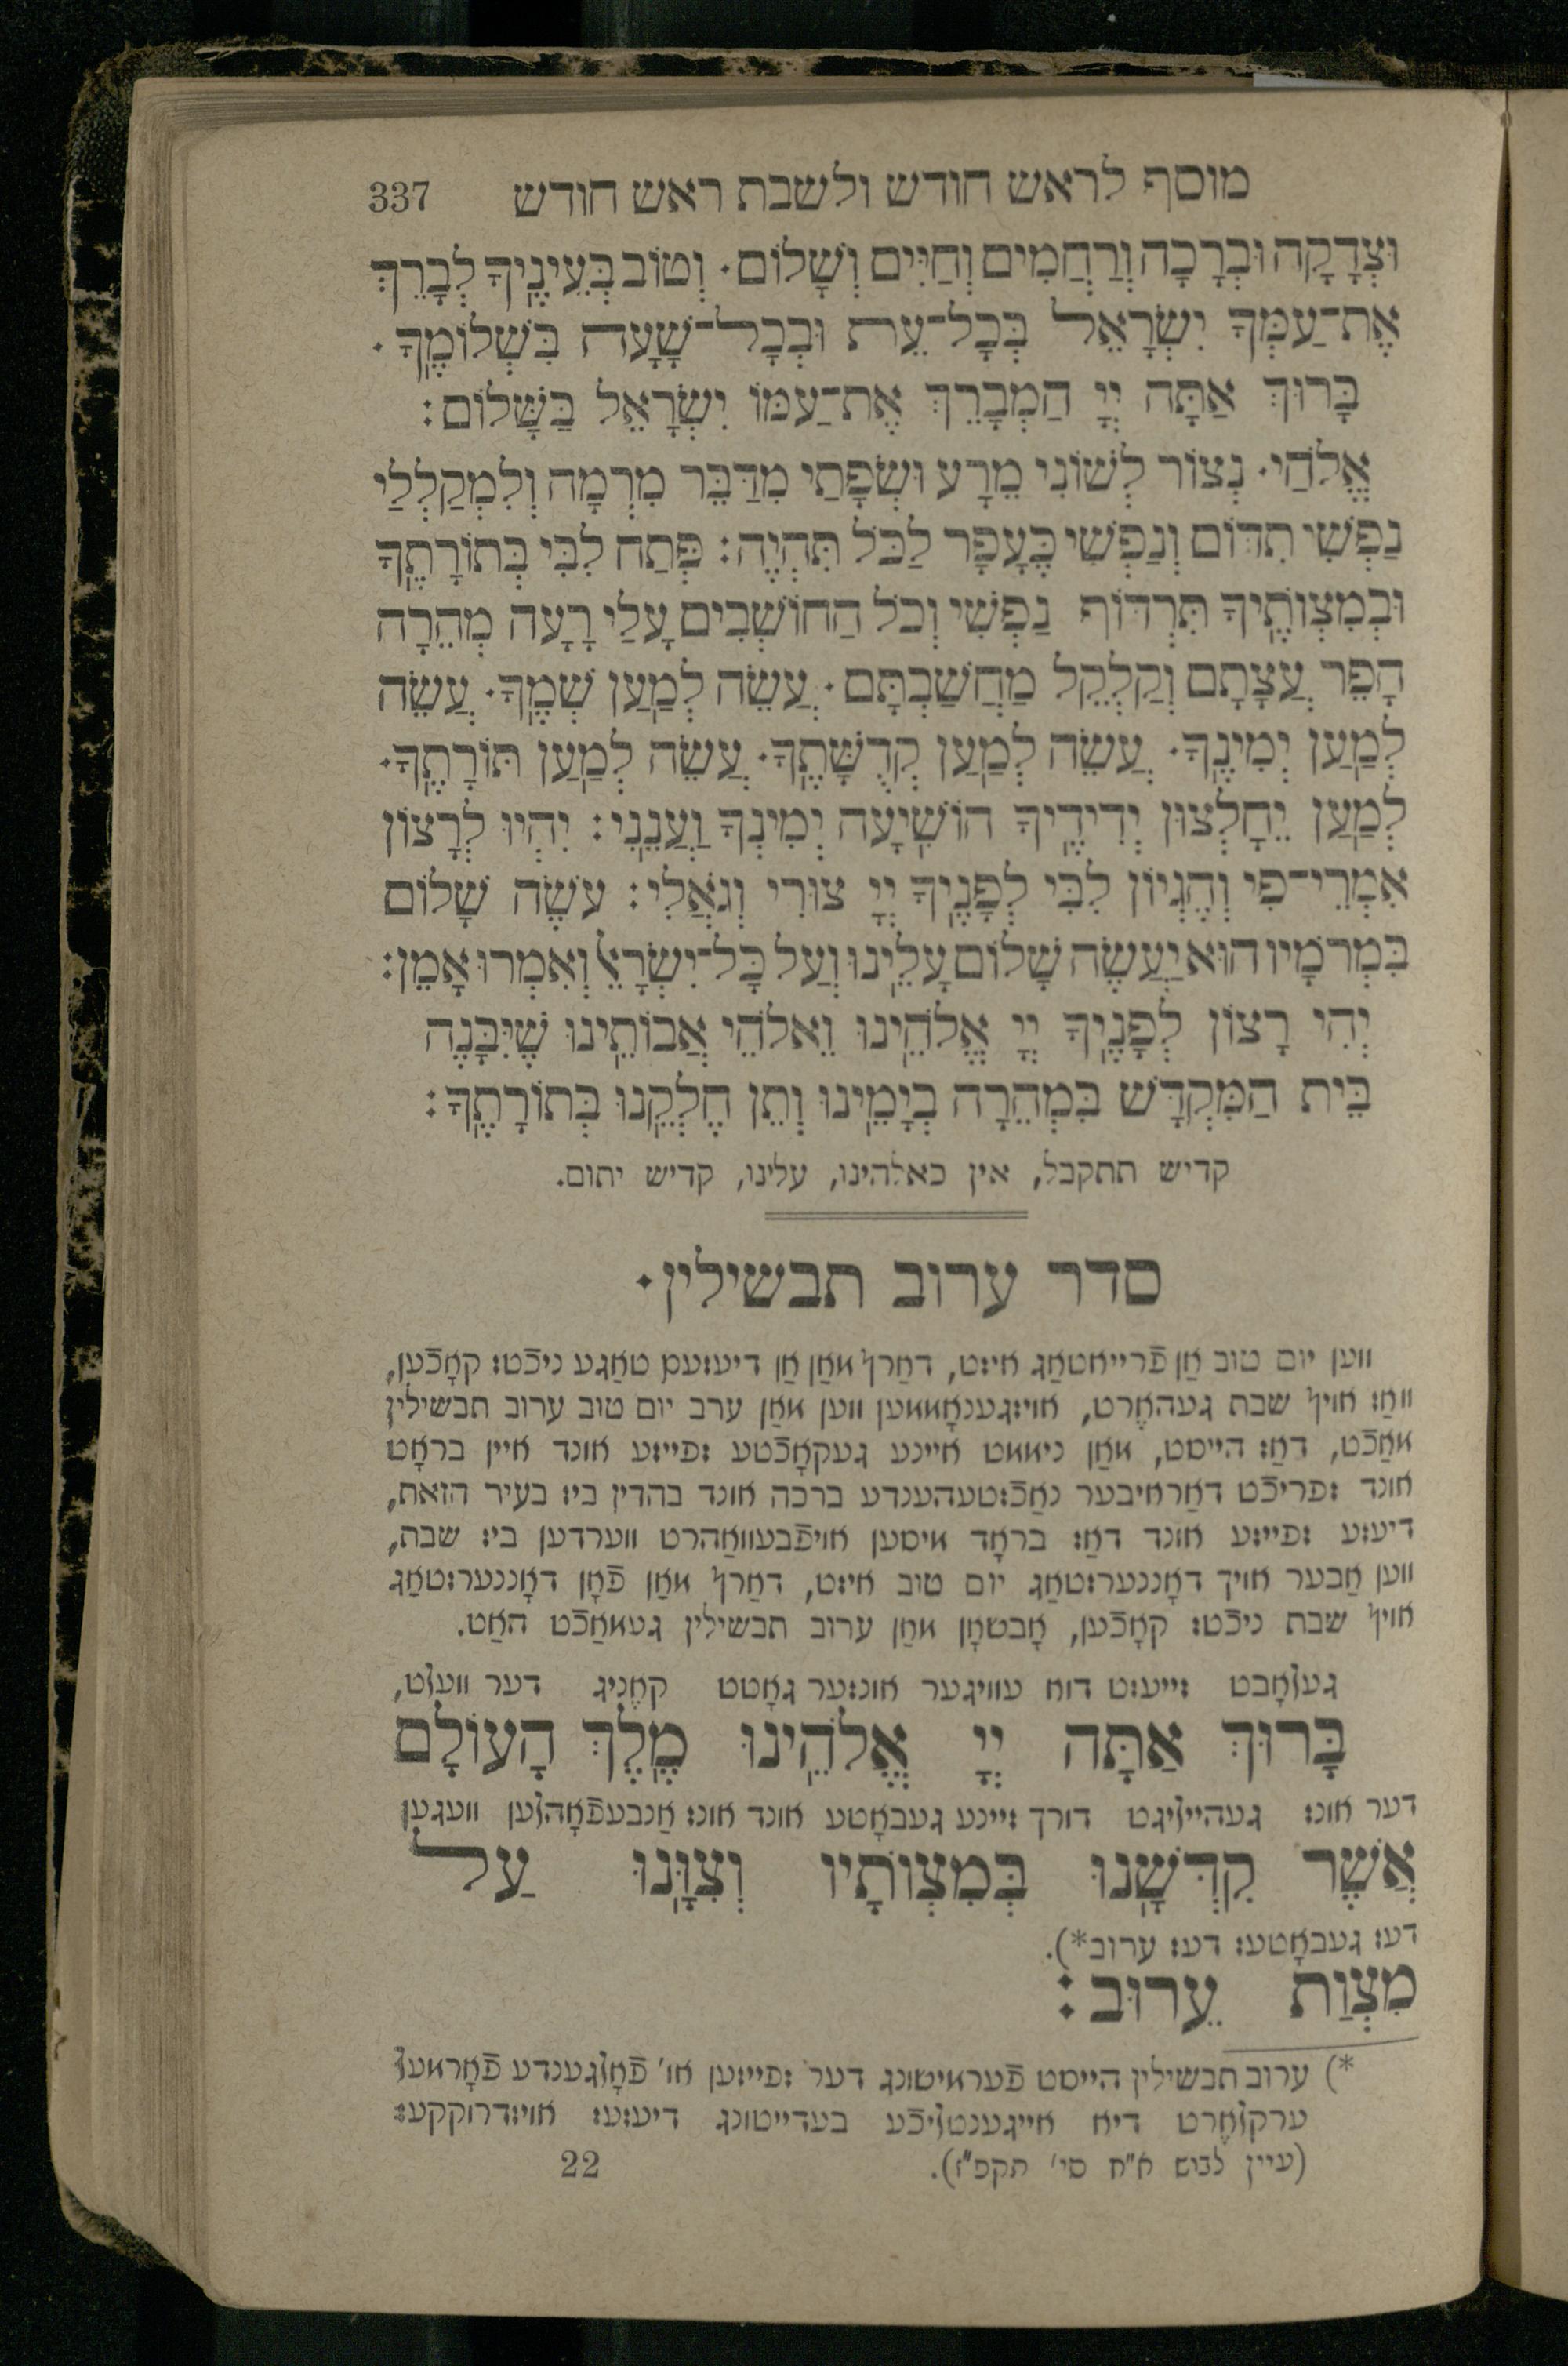 מוסף לראש חודש ולשבת ראש חודש 337
וּצְדָקָה וּבְרָכָה וְרַחֲמִים וְחַיִּים וְשָׁלוֹם· וְטוֹב בְּעֵינֶֽיךָ לְבָרֵךְ
אֶת־עַמְּךָ יִשְׂרָאֵל בְּכָל־עֵת וּבְכָל־שָׁעָה בִּשְׁלוֹמֶֽךָ·
בָּרוּךְ אַתָּה יְיָ הַמְבָרֵךְ אֶת־עַמּוֹ יִשְׂרָאֵל בַּשָּׁלוֹם:
אֱלֹהַי· נְצוֹר לְשׁוֹנִי מֵרָע וּשְׂפָתַי מִדַּבֵּר מִרְמָה וְלִמְקַלְלַי
נַפְשִׁי תִדּוֹם וְנַפְשִׁי כֶּעָפָר לַכֹּל תִּהְיֶה: פְּתַח לִבִּי בְּתוֹרָתֶֽךָ
וּבְמִצְוֹתֶֽיךָ תִּרְדּוֹף נַפְשִׁי וְכֹל הַחוֹשְׁבִים עָלַי רָעָה מְהֵרָה
הָפֵר עֲצָתָם וְקַלְקֵל מַחֲשַׁבְתָּם· עֲשֵׂה לְמַֽעַן שְׁמֶֽךָ· עֲשֵׂה
לְמַֽעַן יְמִינֶֽךָ· עֲשֵׂה לְמַֽעַן קְדֻשָּׁתֶֽךָ· עֲשֵׂה לְמַֽעַן תּוֹרָתֶֽךָ·
לְמַֽעַן יֵחָלְצוּן יְדִידֶֽיךָ הוֹשִֽׁיעָה יְמִינְךָ וַעֲנֵנִי: יִהְיוּ לְרָצוֹן
אִמְרֵי־פִי וְהֶגְיוֹן לִבִּי לְפָנֶֽיךָ יְיָ צוּרִי וְגֹאֲלִי: עֹשֶׂה שָׁלוֹם
בִּמְרֹמָיו הוּא יַעֲשֶׂה שָׁלוֹם עָלֵֽינוּ וְעַל כָּל־יִשְׂרָאֵל וְאִמְרוּ אָמֵן:
יְהִי רָצוֹן לְפָנֶֽיךָ יְיָ אֱלֹהֵֽינוּ וֵאלֹהֵי אֲבוֹתֵֽינוּ שֶׁיִּבָּנֶה
בֵּית הַמִּקְדָּשׁ בִּמְהֵרָה בְיָמֵֽינוּ וְתֵן חֶלְקֵֽנוּ בְּתוֹרָתֶֽךָ:
קדיש תתקבל, אין כאלהינו, עלינו, קדיש יתום.
סדר ערוב תבשילין·
ווען יום טוב אַן פֿרייאטאַג איזט, דאַרף מאַן אַן דיעזעם טאַגע ניכֿטס קאָכֿען,
וואַס אויף שבת געהאֶרט, אויסגענאָממען ווען מאַן ערב יום טוב ערוב תבשילין
מאַכֿט, דאַס הייסט, מאַן ניממט איינע געקאָכֿטע ספייזע אונד איין בראָט
אונד ספריכֿט דאַראיבער נאַכֿסטעהענדע ברכה אונד בהדין ביז בעיר הזאת,
דיעזע ספייזע אונד דאַס בראָד מיסען אויפֿבעוואַהרט ווערדען ביז שבת,
ווען אַבער אויך דאָננערסטאַג יום טוב איזט, דאַרף מאַן פֿאָן דאָננערסטאַג
אויף שבת ניכֿטס קאָכֿען, אָבטאָן מאַן ערוב תבשילין געמאַכֿט האַט.
געלאָבט זייעסט דוא עוויגער אונזער גאָטט קאֶניג דער וועלט,
בָּרוּךְ אַתָּה יְיָ אֱלֹהֵֽינוּ מֶֽלֶךְ הָעוֹלָם
דער אונס געהייליגט דורך זיינע געבאָטע אונד אונס אַנבעפֿאָהלען וועגען
אֲשֶׁר קִדְּשָֽׁנוּ בְּמִצְוֹתָיו וְצִוָּֽנוּ עַל
דעס געבאָטעס דעס ערוב*).
מִצְוַת עֵרוּב:
*) ערוב תבשילין הייסט פֿערמישונג דער ספייזען או' פֿאָלגענדע פֿאָרמעל
ערקלאֶרט דיא אייגענטליכֿע בעדייטונג דיעזעס אויסדרוקקעס
(עיין לבוש א"ח סי' תקפ"ז).
22